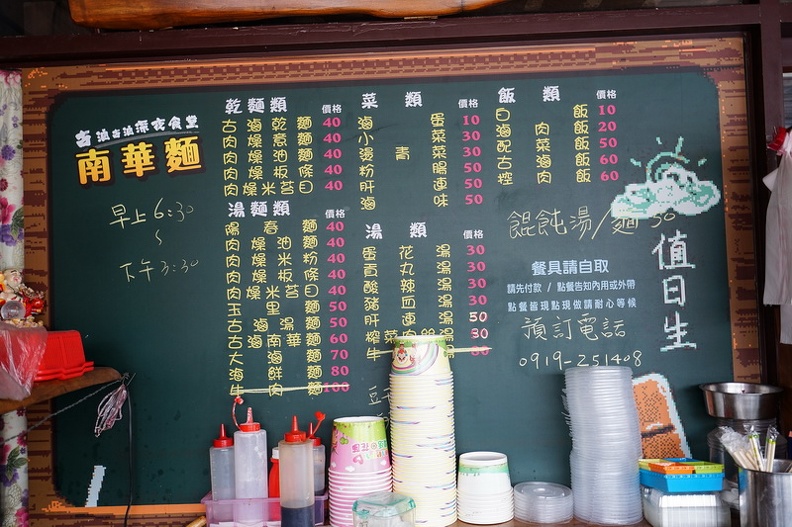 古滷古滷深夜食堂
南華麵
早上6:30
~
下午3:30
乾麵類 價格
古滷乾麵 40
肉燥意麵 40
肉燥油麵 40
肉燥板條 40
肉燥米苔目 40
湯麵類 價格
陽春麵 40
肉燥油麵 40
肉燥米粉 40
肉燥板條 40
肉燥米苔目 40
玉里麵 50
古滷湯麵 50
古滷南華麵 60
大滷麵 70
海鮮麵 80
牛肉麵 100
菜類 價格
滷蛋 10
小菜 30
燙青菜 30
粉腸 50
肝連 50
滷味 50
湯類 價格
蛋花湯 30
貢丸湯 30
酸辣湯 30
豬血湯 30
肝連湯 50
榨菜肉絲湯 30
飯類 價格
白飯 10
滷肉飯 20
配菜飯 50
古滷飯 60
控肉飯 60
餛飩湯/麵 50
餐具請自取
請先付款 / 點餐告知內用或外帶
點餐皆現點現做請耐心等候
預訂電話
0919-251408
值日生